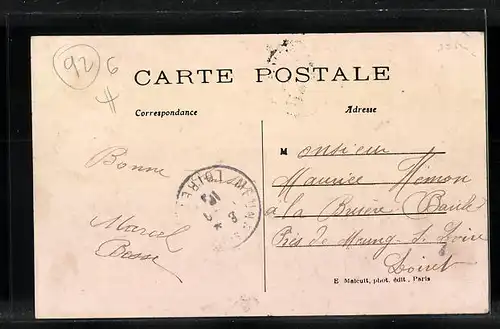 92 6
CARTE POSTALE
Correspondance
Adresse
Bonne
Marcel
Bosse
Monsieur
Maurice
à la
Près de Meung s. Loire
Loiret
LOIRET
E Malcuit, phot. édit., Paris